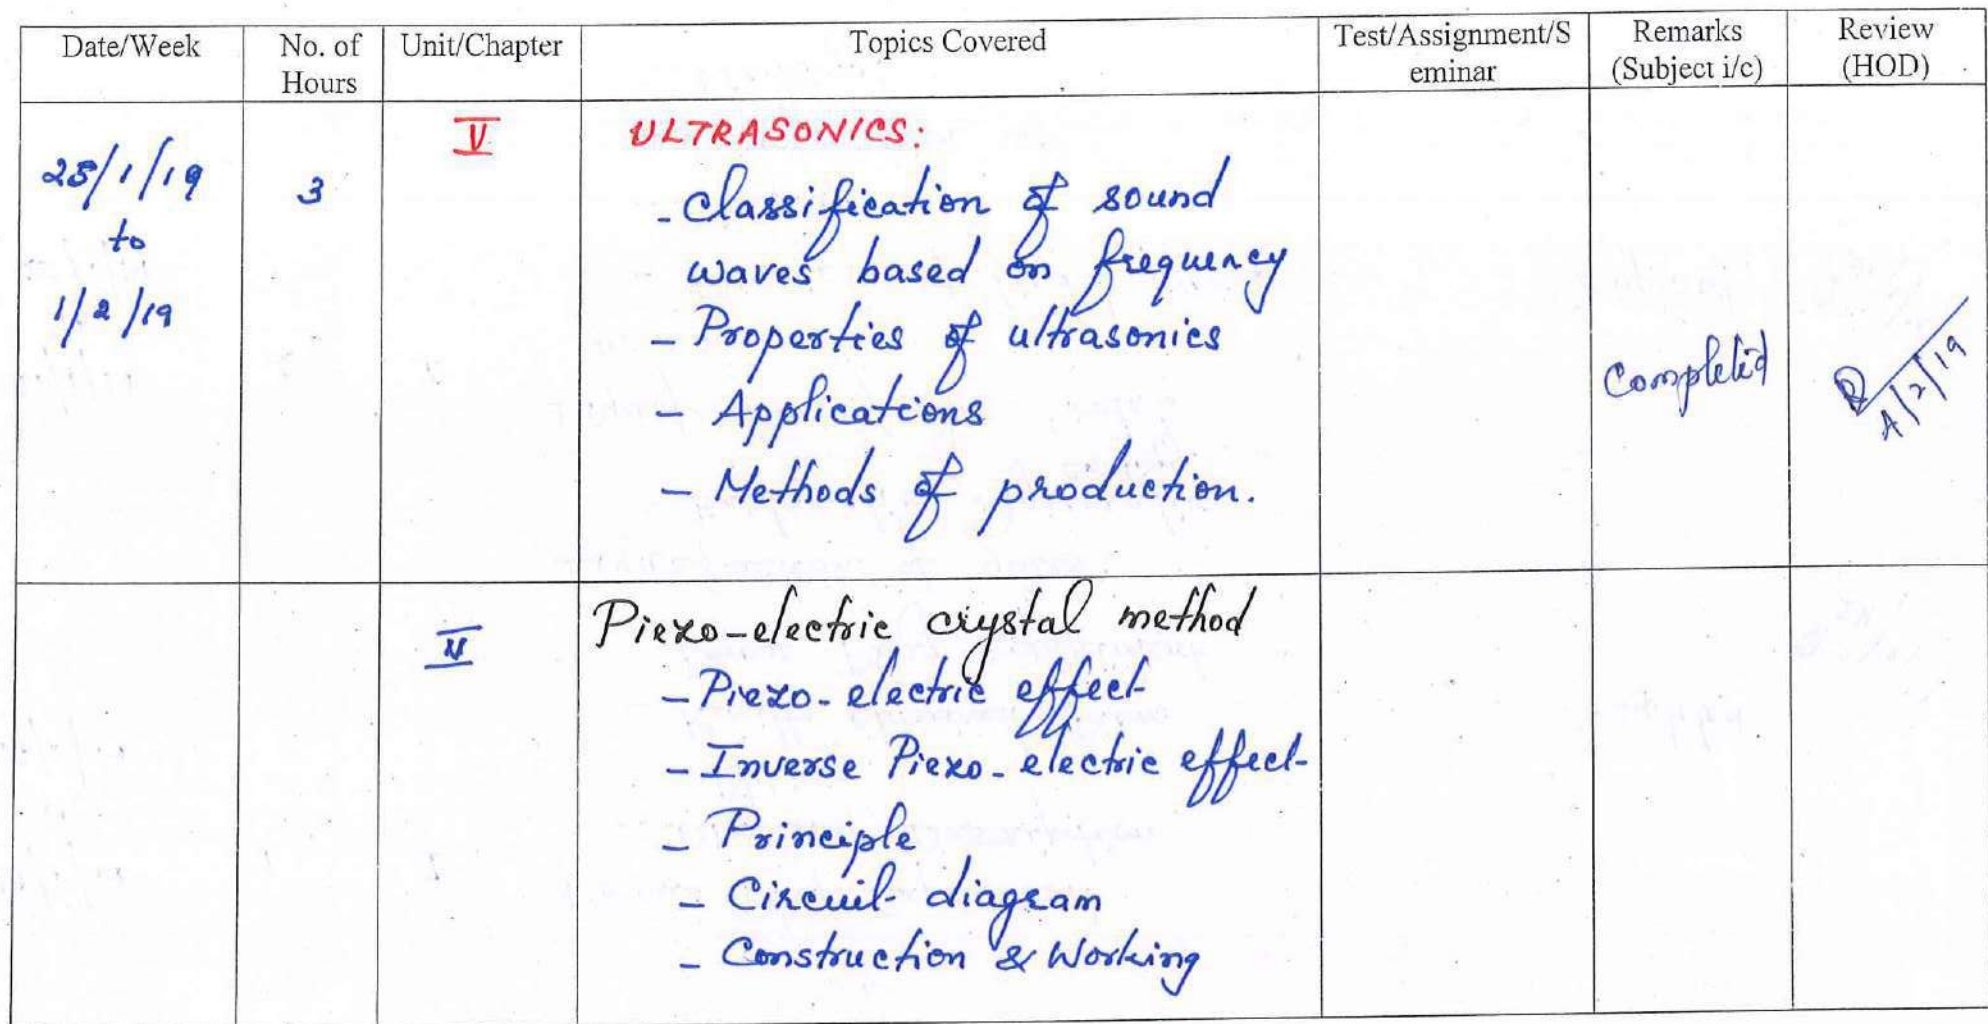 Date/Week
No. of
Hours
Unit/Chapter
Topics Covered
Test/Assignment/S
eminar
Remarks
(Subject i/c)
Review
(HOD)
to
1/2/19
3
V
ULTRASONICS:
- Classification of sound
waves based on frequency
- Properties of ultrasonics
- Applications
- Methods of production.
Completed
Piezo-electric crystal method
- Piezo-electric effect
- Inverse Piezo-electric effect
- Principle
- Circuit diagram
- Construction & Working